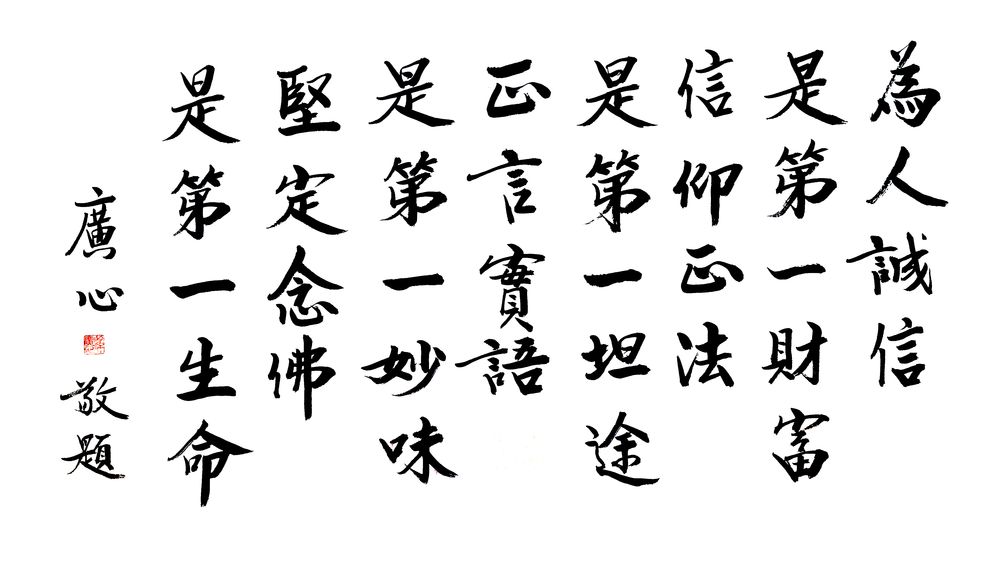 為人誠信
是第一財富
信仰正法
是第一坦途
正言實語
是第一妙味
堅定念佛
是第一生命
廣心敬題